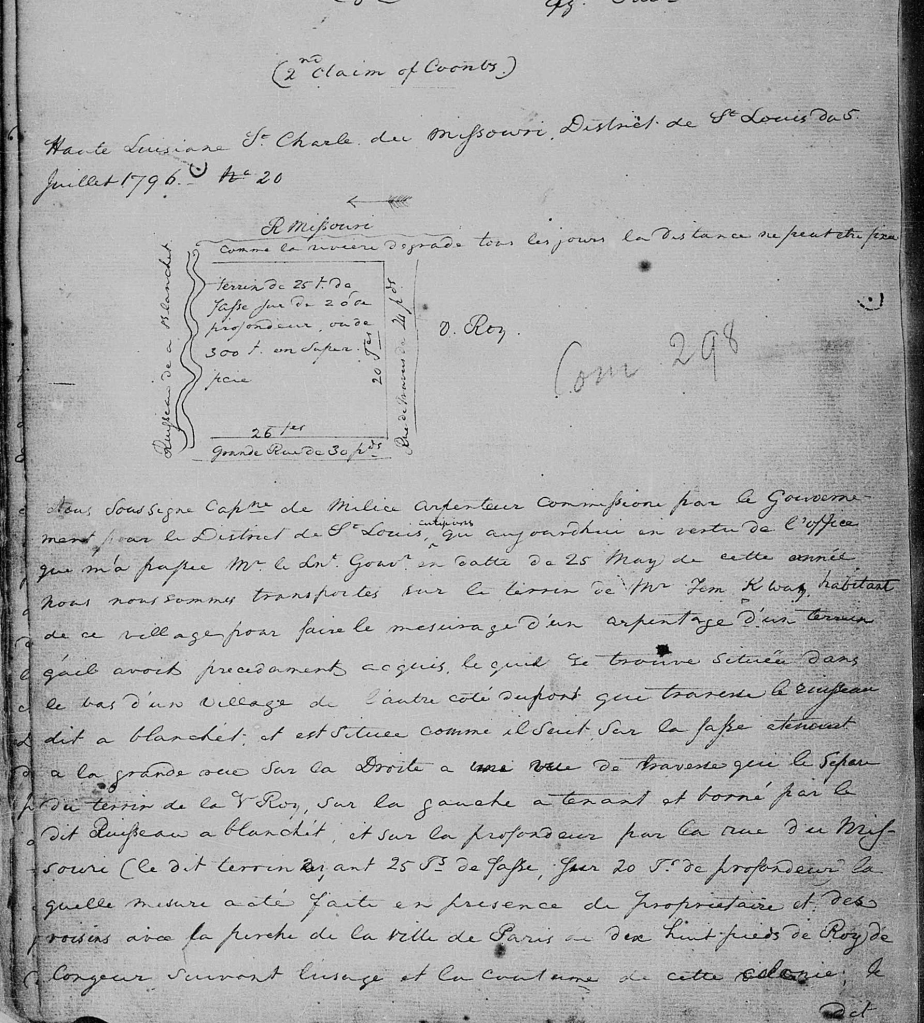 (2nd Claim of Coontz)
Haute Luisiane St Charle du Missouri, District de St Louis du 5
Juillet 1796. No 20
R Missouri
Comme la riviere degrade tous les jours la distance ne peut etre fixee
Ruisseau de a Blanchet
terrin de 25 t. de
fasse sur de 20 de
profondeur, ou de
300 t. en super-
ficie
20 Tes
Rue de travers de 24 pds
v. Roy.
Com 298
26 tes
Grande Rue de 30 pds
Nous Soussigne Capne de Milice arpenteur Commissione par le Gouverne-
ment pour le District de St Louis, qu aujourdhui en vertu de l'office
que m'a passee Mr le Lnt. Gouvr. en datte de 25 May de cette année
nous nous sommes transportes sur le terrin de Mr habitant
de ce village pour faire le mesurage d'un arpentage d'un terrein
quil avoit precedament acquis, le quil se trouve Située dans
le bas d'un village de l'autre coté du pont que traverse le ruisseau
dit a blanchét, et est située comme il suit, Sur la fasse atenant
a la grande rue Sur la Droite a une rue de traverse qui le Separe
du terrin de la V Roy, sur la gauche atenant et borné par le
dit Ruisseau a blanchét, et sur la profondeur par la rue du Mis-
souri (le dit terrin ayant 25 Ts de fasse, sur 20 Ts de profondeur la
quelle mesure a été faite en presence de proprietaire et des
voisins avec la perche de la ville de Paris de dix huit pieds de Roy de
Longeur suivant lusage et la coutume de cette colonie; le
dit